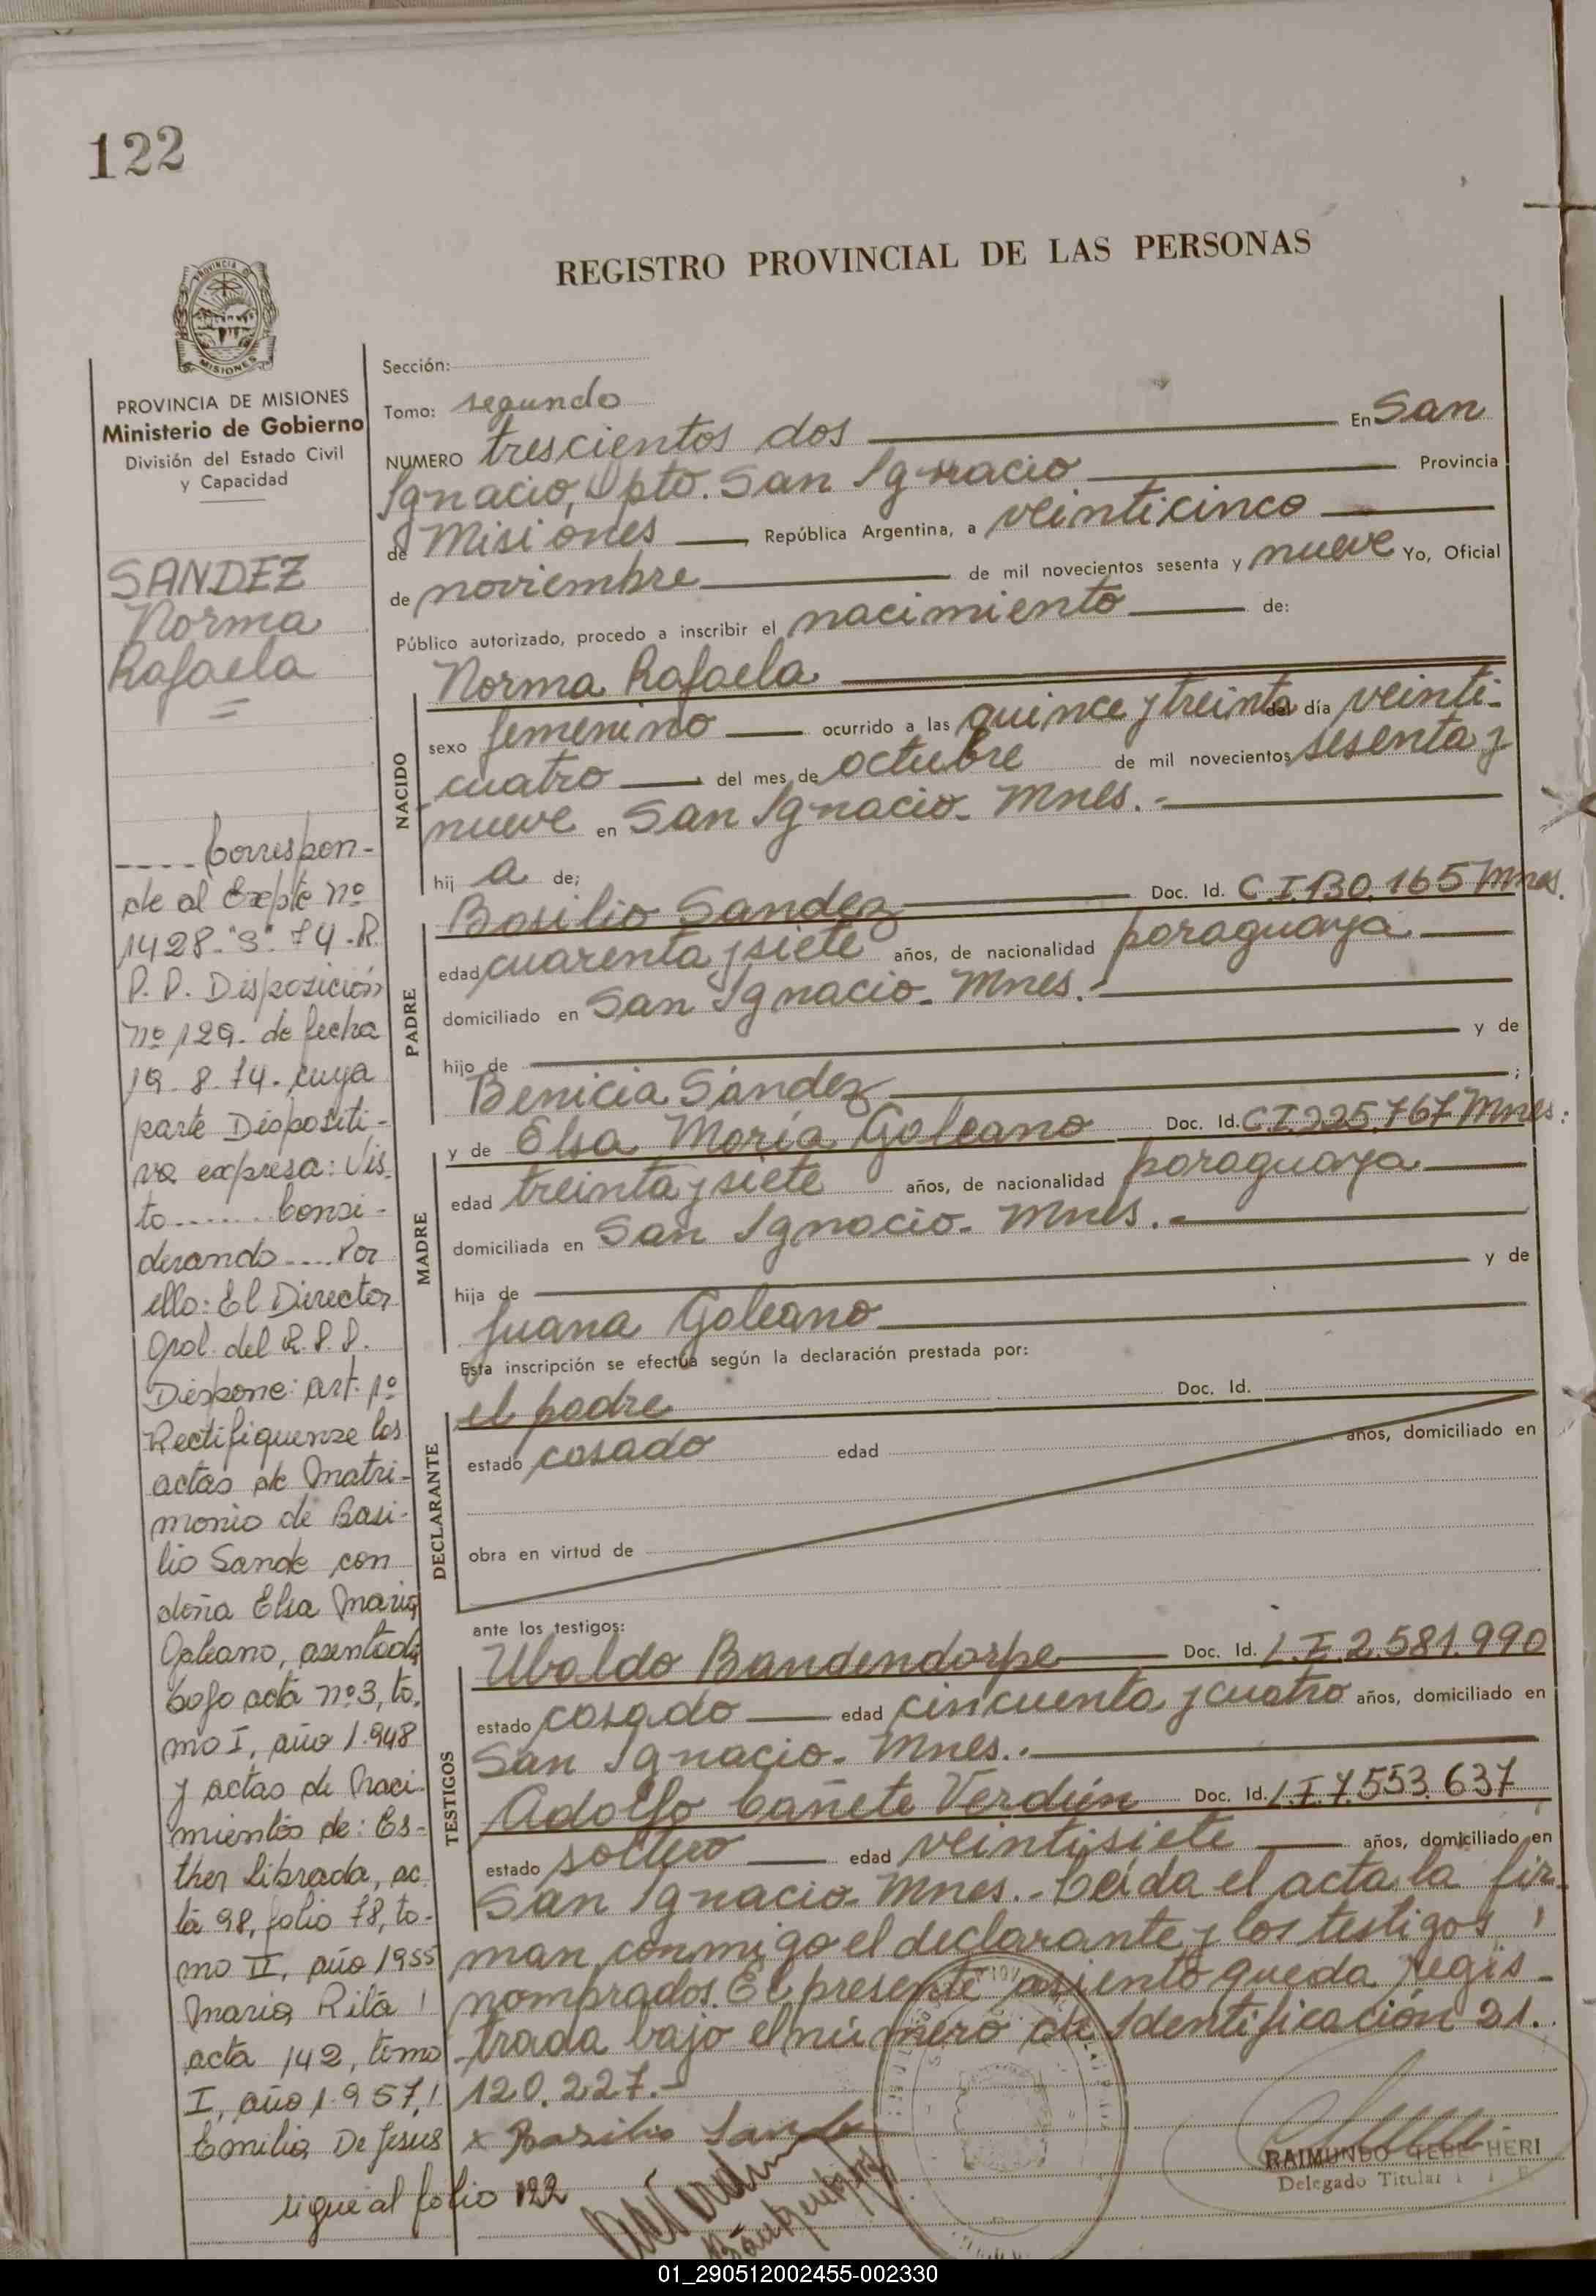 122
REGISTRO PROVINCIAL DE LAS PERSONAS
PROVINCIA
MISIONES
PROVINCIA DE MISIONES
Ministerio de Gobierno
División del Estado Civil
y Capacidad
SANDEZ
Norma
Rafaela
---- Correspon-
de al Expte nº
1428-"S"-74-R.
P.P. Disposición
nº 129- de fecha
19-8-74- cuya
parte Dispositi-
va expresa: Vis-
to...... Consi-
derando.... Por
ello: El Director
Gral. del R.P.P.
Dispone: art. 1º
Rectifiquense los
actas de Matri-
monio de Basi-
lio Sande con
doña Elsa Maria
Galeano, asentada
bajo acta nº3, to-
mo I, año 1.948
y actas de Naci-
mientos de: Es-
ther Librada, ac-
ta 98, folio 78, to-
mo II, año 1955
Maria Rita
acta 142, tomo
I, año 1.957,
Emilia De Jesus
sigue al folio 122
Sección:
Tomo: segundo
NUMERO trescientos dos En San
Ignacio, Dpto. San Ignacio Provincia
de Misiones República Argentina, a veinticinco
de noviembre de mil novecientos sesenta y nueve Yo, Oficial
Público autorizado, procedo a inscribir el nacimiento de:
NACIDO
Norma Rafaela
sexo femenino ocurrido a las quince y treinta del día veinti-
cuatro del mes de octubre de mil novecientos sesenta y
nueve en San Ignacio- Mnes.-
hij a de;
PADRE
Basilio Sandez Doc. Id. C.I.130.165 Mnes.
edad cuarenta y siete años, de nacionalidad paraguaya
domiciliado en San Ignacio- Mnes.-
hijo de y de
Benicia Sández ;
MADRE
y de Elsa María Galeano Doc. Id. C.I.225.767 Mnes:
edad treinta y siete años, de nacionalidad paraguaya
domiciliada en San Ignacio- Mnes.-
hija de y de
Juana Galeano
Esta inscripción se efectúa según la declaración prestada por:
DECLARANTE
el padre Doc. Id.
estado casado edad años, domiciliado en
obra en virtud de
ante los testigos:
TESTIGOS
Ubaldo Bandendorpe Doc. Id. L.E.2.581.990
estado casado edad cincuenta y cuatro años, domiciliado en
San Ignacio- Mnes.-
Adolfo Cañete Verdún Doc. Id. L.E.7.553.637
estado soltero edad veintisiete años, domiciliado en
San Ignacio- Mnes.- Leída el acta la fir-
man conmigo el declarante y los testigos
nombrados. El presente asiento queda regis-
trada bajo el número de Identificación 21.
120.227.-
x Basilio Sande
RAIMUNDO HERI
Delegado Titular
01_290512002455-002330